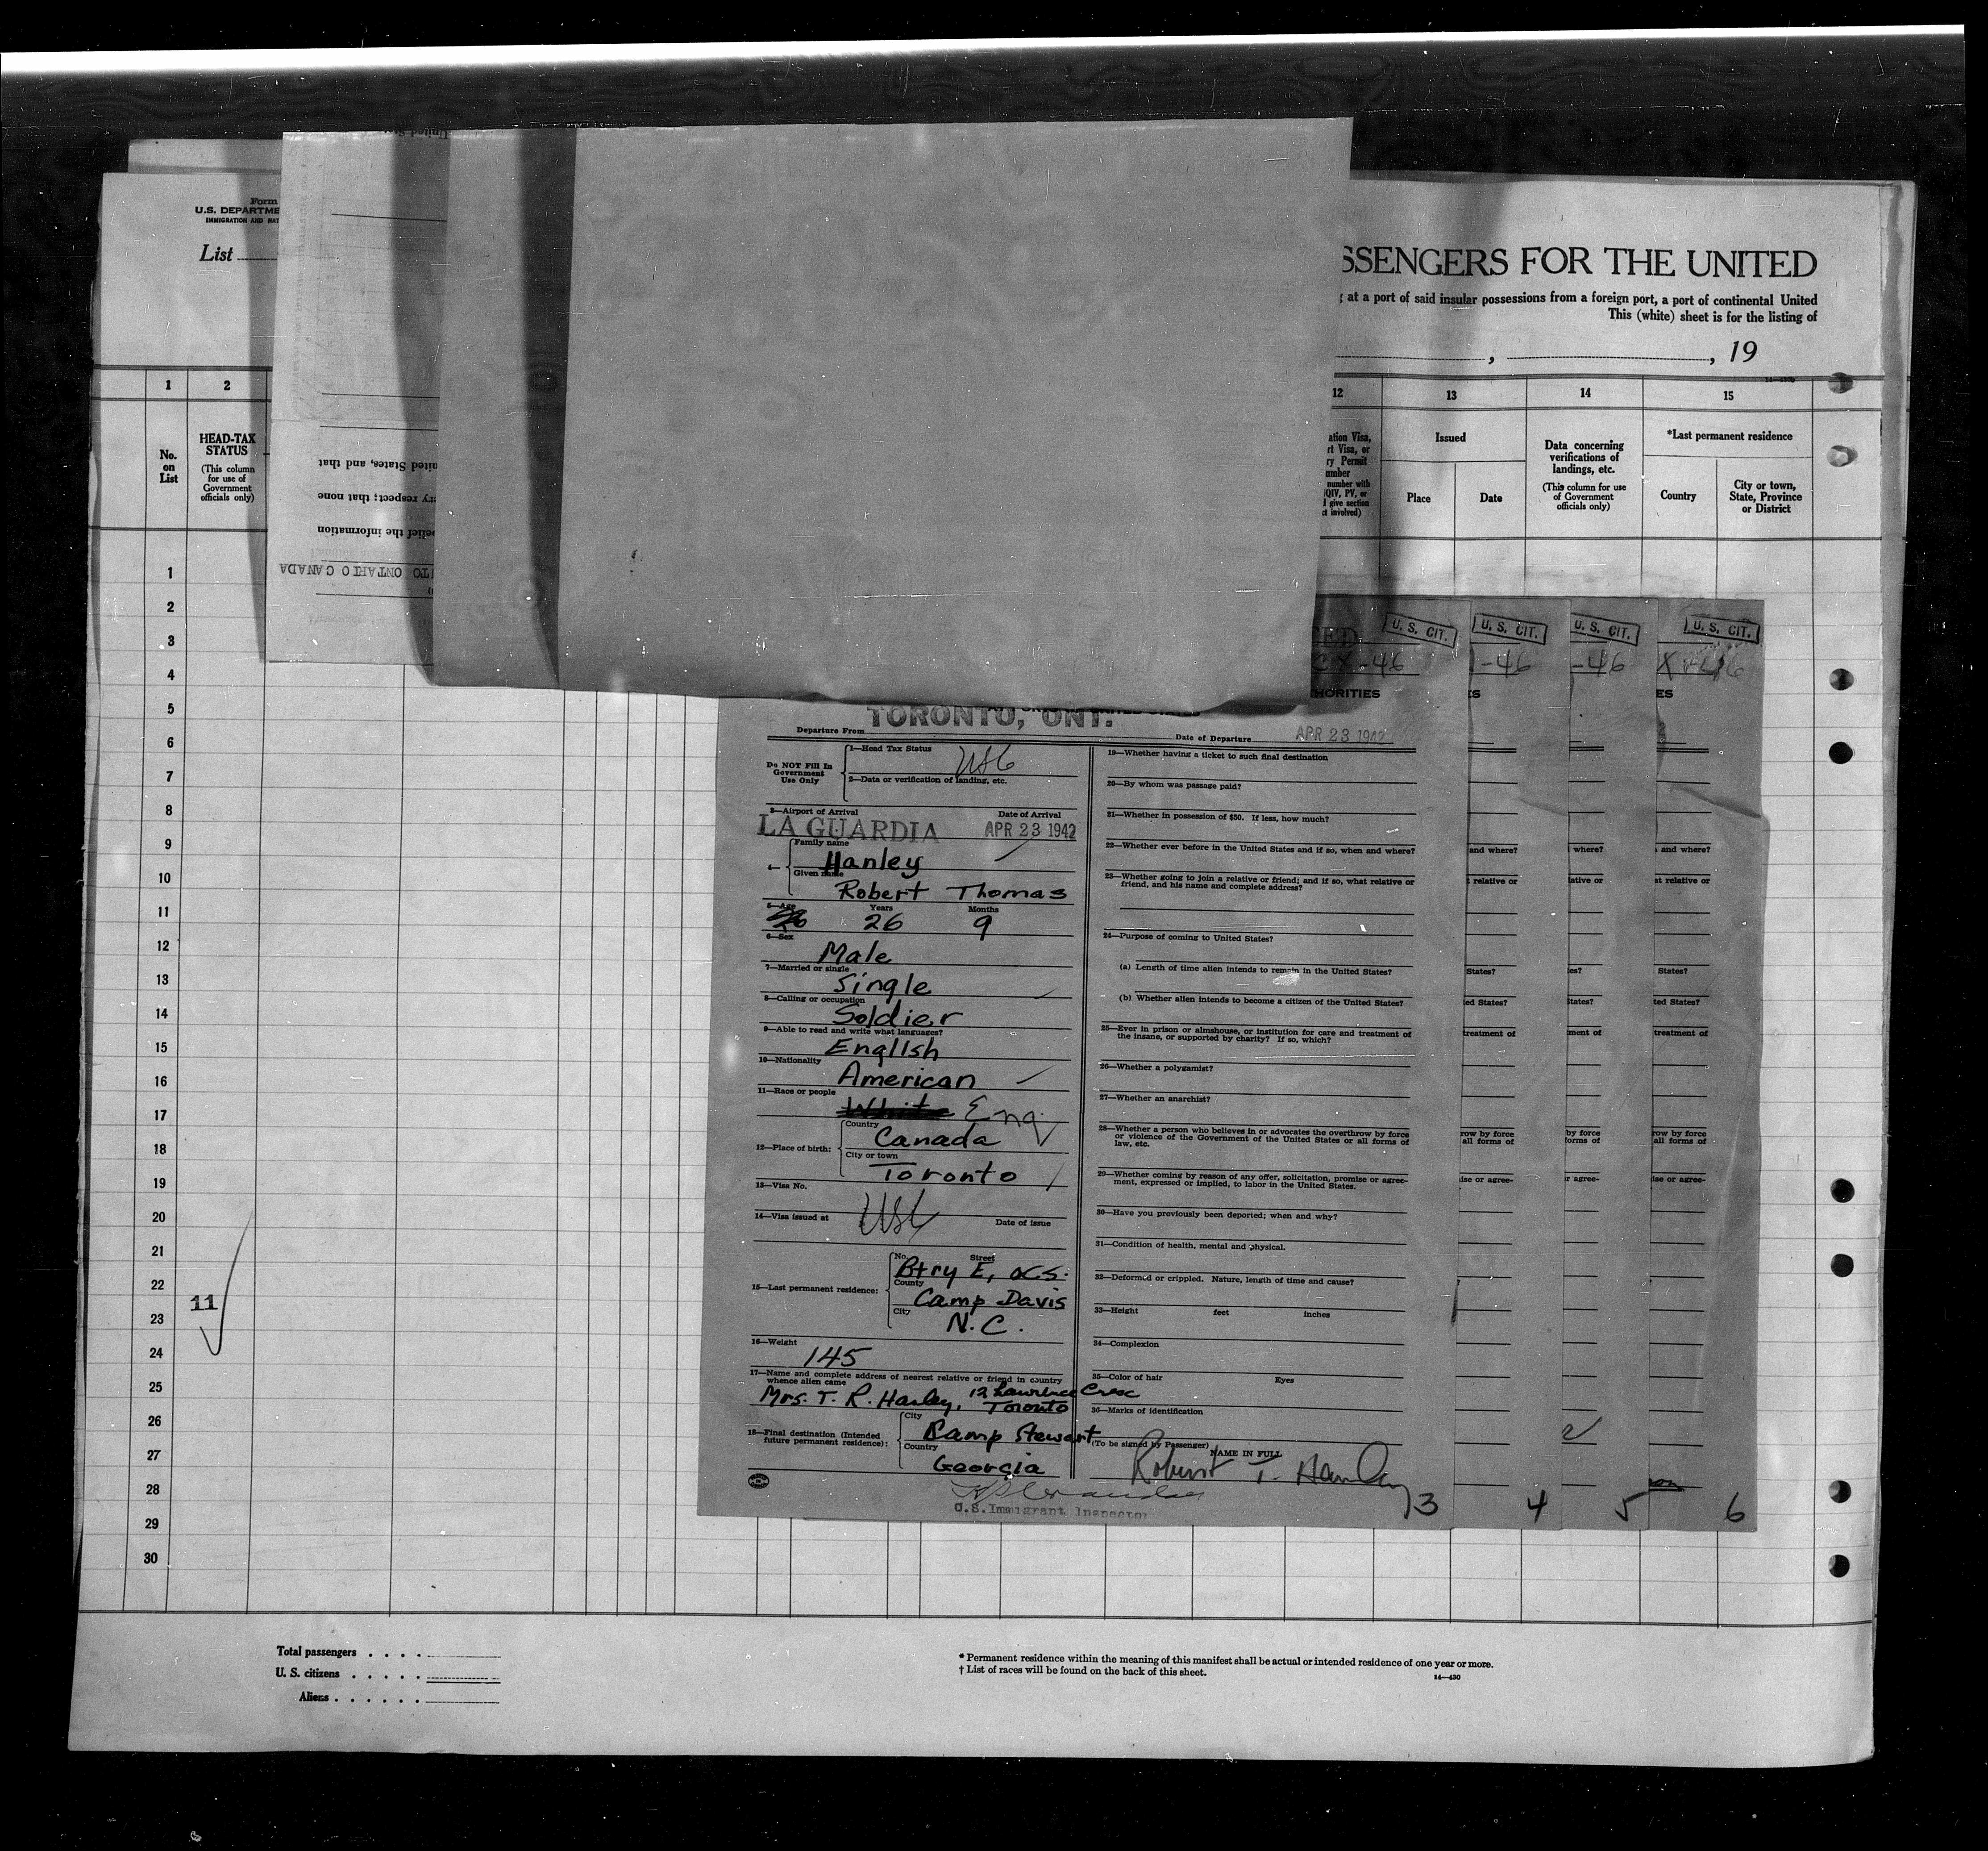 Form
U.S. DEPARTME
IMMIGRATION AND NAT
List
United Sta
nited States, and that
ry respect; that none
belief the information
TO ONTARIO CANADA
SSENGERS FOR THE UNITED
at a port of said insular possessions from a foreign port, a port of continental United
This (white) sheet is for the listing of
, , 19
1 2 12 13 14 15
No. on List
HEAD-TAX STATUS
(This column for use of Government officials only)
ation Visa,
rt Visa, or
ry Permit
umber
number with
QIV, PV, or
give section
ct involved)
Issued
Place Date
Data concerning verifications of landings, etc.
(This column for use of Government officials only)
*Last permanent residence
Country
City or town, State, Province or District
1
2
3
4
5
6
7
8
9
10
11
12
13
14
15
16
17
18
19
20
21
22
11
23
24
25
26
27
28
29
30
U. S. CIT. U. S. CIT. U. S. CIT. U. S. CIT.
-46 -46 -46
HORITIES ES ES
TORONTO, ONT.
Departure From Date of Departure APR 23 1942
Do NOT Fill In Government Use Only
1—Head Tax Status USC
2—Data or verification of landing, etc.
3—Airport of Arrival Date of Arrival
LA GUARDIA APR 23 1942
4— Family name
Hanley
Given name
Robert Thomas
5—Age Years Months
26 9
6—Sex
Male
7—Married or single
Single
8—Calling or occupation
Soldier
9—Able to read and write what languages?
English
10—Nationality
American
11—Race or people
White Eng
12—Place of birth: Country
Canada
City or town
Toronto
13—Visa No.
USC
14—Visa issued at Date of issue
15—Last permanent residence: No. Street
Btry E, OCS.
County
Camp Davis
City
N.C.
16—Weight
145
17—Name and complete address of nearest relative or friend in country
whence alien came
Mrs. T. R. Hanley, 12 Lawrence Cresc
Toronto
18—Final destination (Intended future permanent residence): City
Camp Stewart
Country
Georgia
U.S. Immigrant Inspector
19—Whether having a ticket to such final destination
20—By whom was passage paid?
21—Whether in possession of $50. If less, how much?
22—Whether ever before in the United States and if so, when and where?
23—Whether going to join a relative or friend; and if so, what relative or
friend, and his name and complete address?
24—Purpose of coming to United States?
(a) Length of time alien intends to remain in the United States?
(b) Whether alien intends to become a citizen of the United States?
25—Ever in prison or almshouse, or institution for care and treatment of
the insane, or supported by charity? If so, which?
26—Whether a polygamist?
27—Whether an anarchist?
28—Whether a person who believes in or advocates the overthrow by force
or violence of the Government of the United States or all forms of
law, etc.
29—Whether coming by reason of any offer, solicitation, promise or agree-
ment, expressed or implied, to labor in the United States.
30—Have you previously been deported; when and why?
31—Condition of health, mental and physical.
32—Deformed or crippled. Nature, length of time and cause?
33—Height feet inches
34—Complexion
35—Color of hair Eyes
36—Marks of identification
(To be signed by Passenger) NAME IN FULL
Robert T. Hanley
3 4 5 6
and where? where? and where?
relative or lative or at relative or
States? es? States?
ed States? States? ted States?
treatment of ment of treatment of
row by force by force row by force
all forms of forms of all forms of
ise or agree- r agree- ise or agree-
Total passengers . . . .
U. S. citizens . . . . .
Aliens . . . . . .
* Permanent residence within the meaning of this manifest shall be actual or intended residence of one year or more.
† List of races will be found on the back of this sheet.
14—430